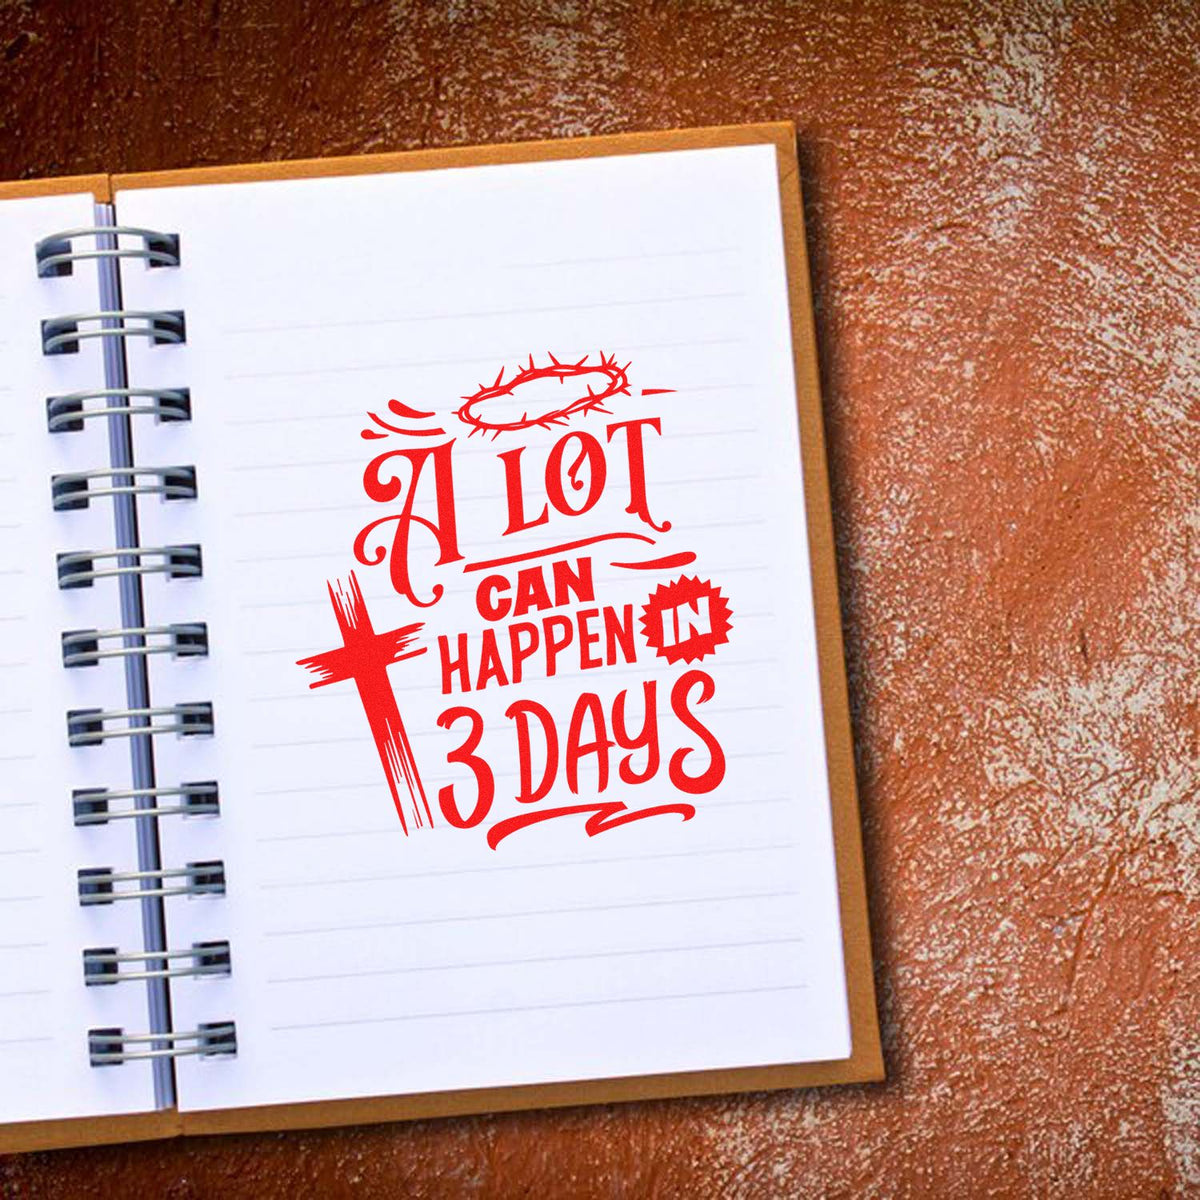 A LOT
CAN
HAPPEN IN
3 DAYS